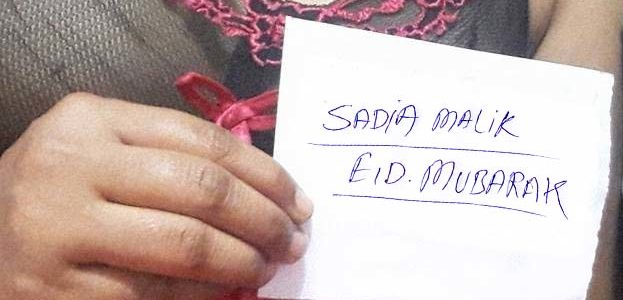 SADIA MALIK
EID. MUBARAK